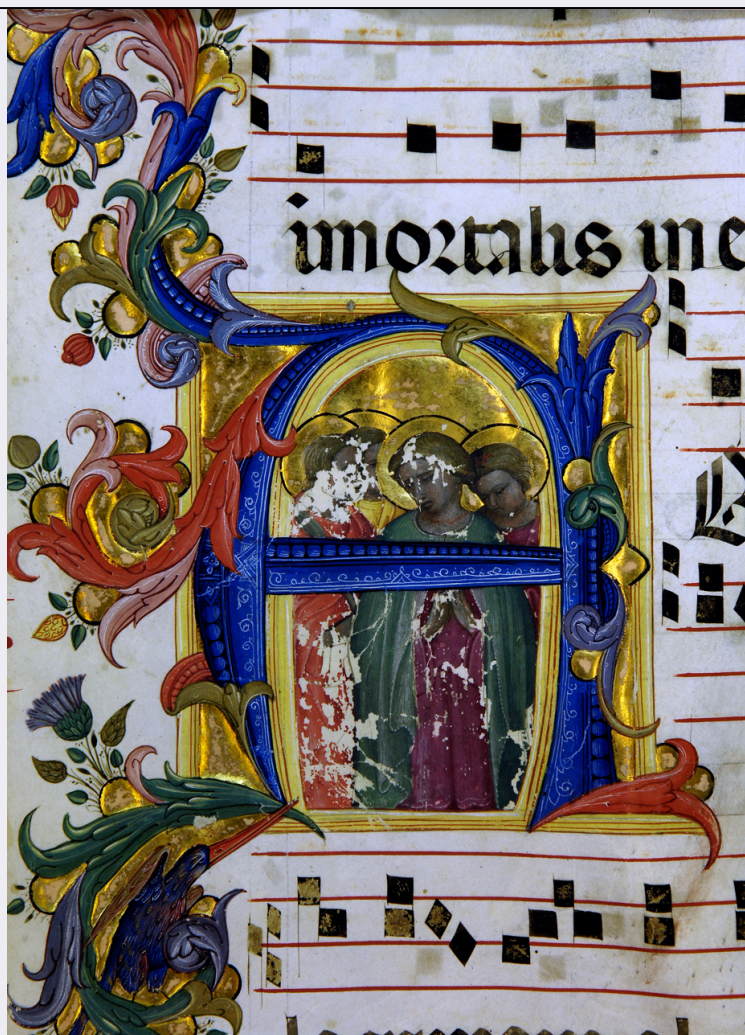 imortalis me
A